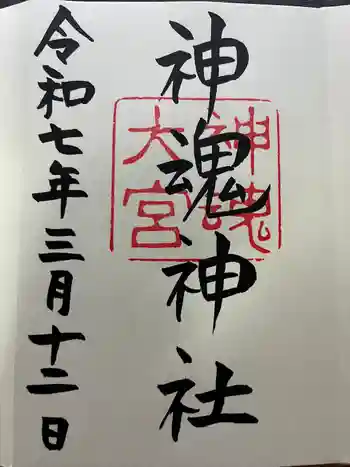 神魂神社
神魂
大宮
令和七年三月十二日